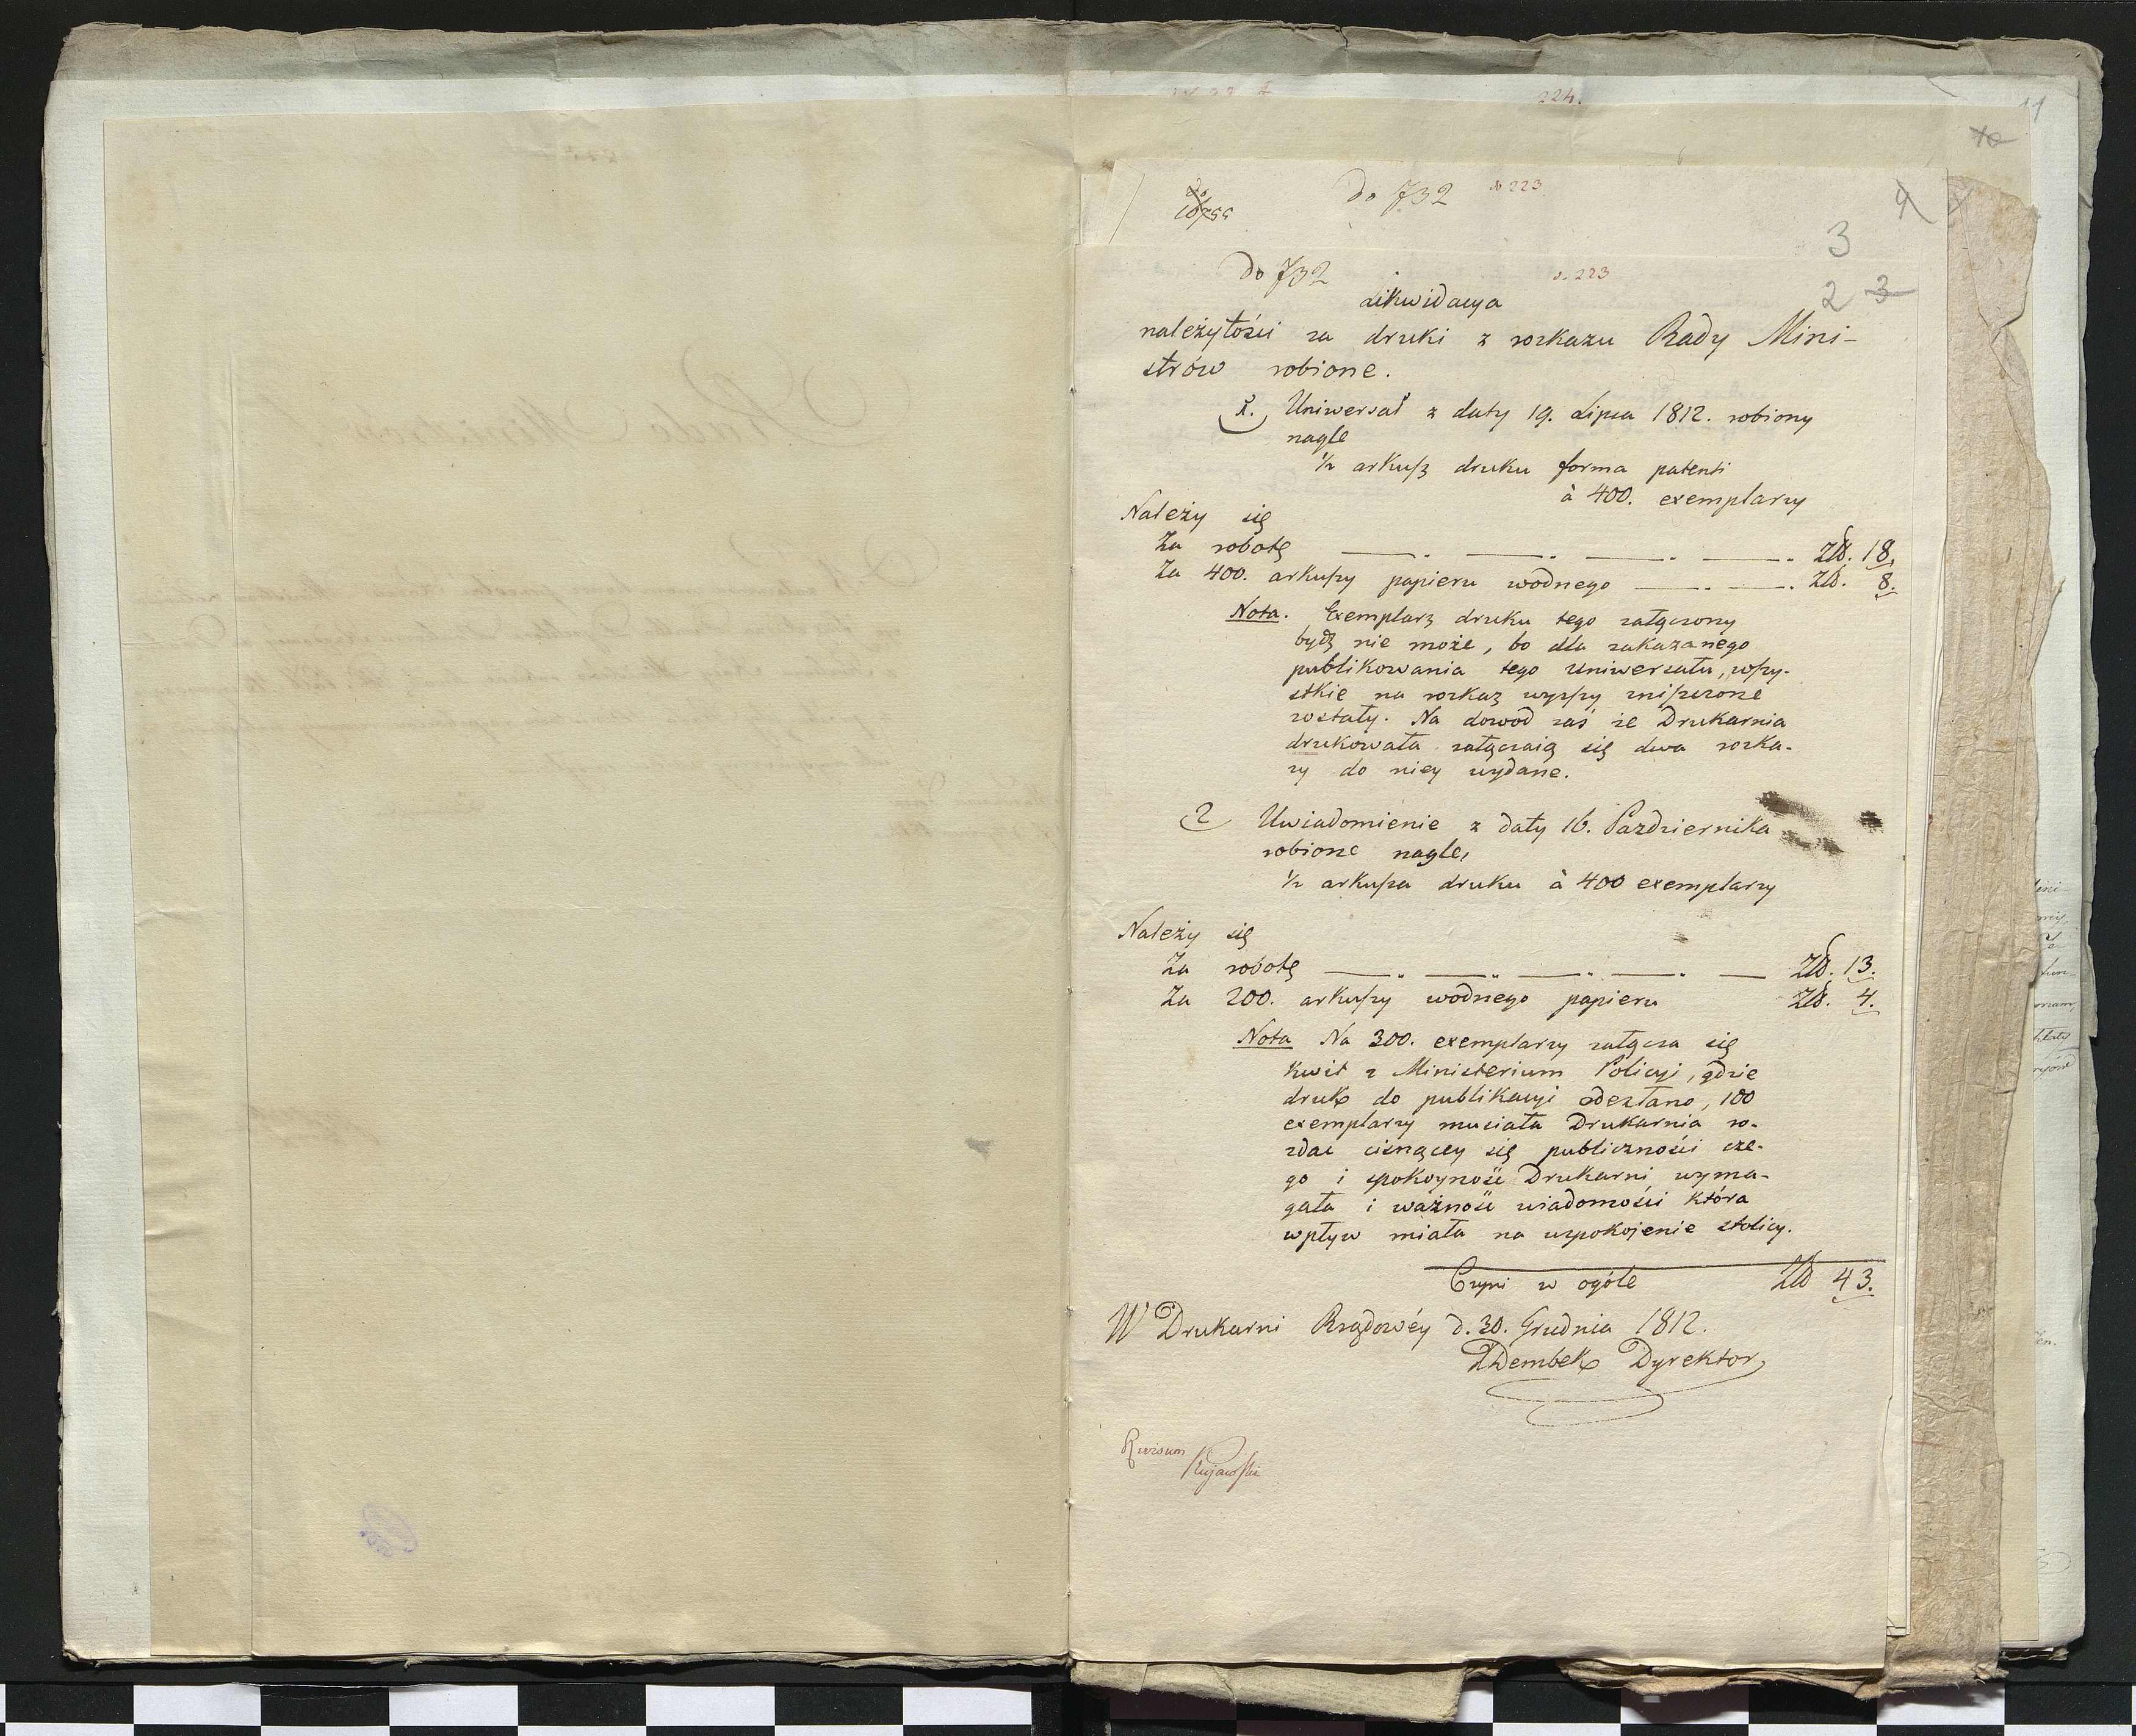 224.
11
10
do 732 N 223
4
3
do 732 N. 223
2 3
Likwidacya
należytości za druki z rozkazu Rady Mini-
strów robione.
1. Uniwersał z daty 19. Lipca 1812. robiony
nagle
1/2 arkusz druku forma patenti
à 400. exemplarzy
Należy się
Za robotę Złł. 18.
Za 400. arkuszy papieru wodnego Złł. 8.
Nota. Exemplarz druku tego załączony
bydź nie może, bo dla zakazanego
publikowania tego Uniwersału, wszy-
stkie na rozkaz wyższy zniszczone
zostały. Na dowod zaś że Drukarnia
drukowała załączaią się dwa rozka-
zy do niey wydane.
2 Uwiadomienie z daty 16. Pazdziernika
robione nagle,
1/2 arkusza druku à 400 exemplarzy
Należy się
Za robotę Złł. 13.
Za 200. arkuszy wodnego papieru Złł. 4.
Nota Na 300. exemplarzy załącza się
kwit z Ministerium Policyi, gdzie
druk do publikacyi odesłano, 100
exemplarzy musiała Drukarnia ro-
zdać cisnącey się publiczności cze-
go i spokoyność Drukarni wyma-
gała i ważność wiadomości która
wpływ miała na uspokojenie stolicy.
Czyni w ogóle Złł 43.
W Drukarni Rządowéy d. 30. Grudnia 1812.
Dembek Dyrektor
Revisum
Kujawski